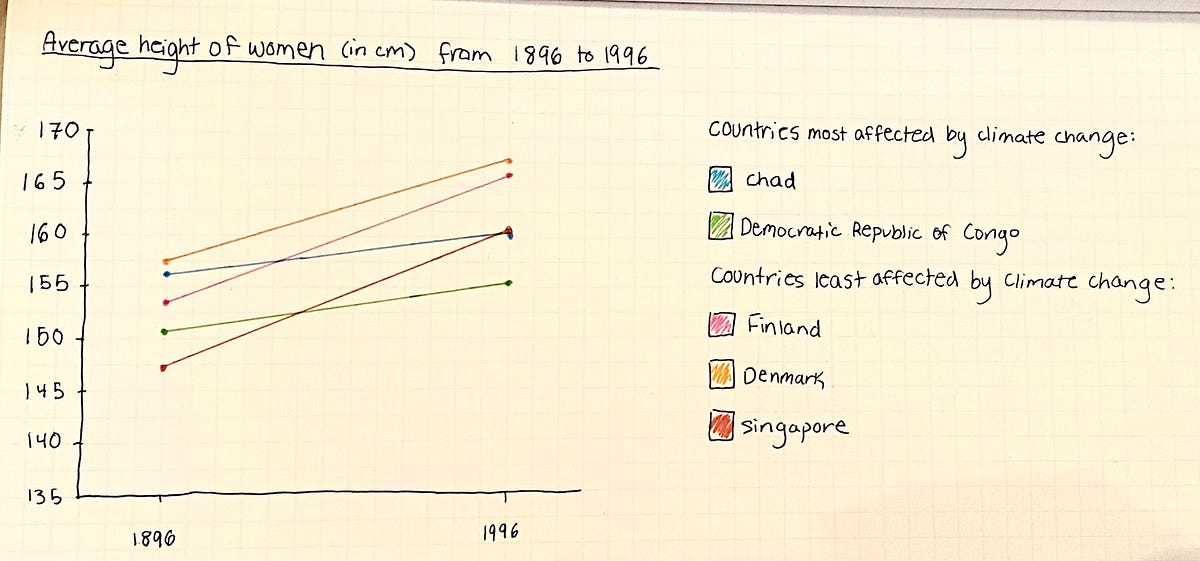 Average height of women (in cm) from 1896 to 1996
170
165
160
155
150
145
140
135
1896
1996
Countries most affected by climate change:
Chad
Democratic Republic of Congo
Countries least affected by climate change:
Finland
Denmark
Singapore